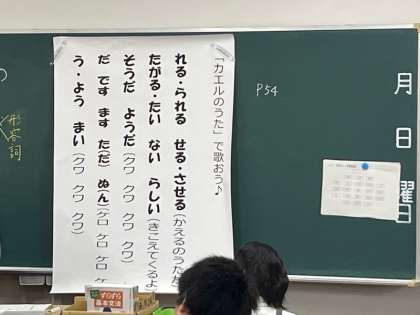 月
日
曜日
P54
「カエルのうた」で歌おう♪
れる・られる せる・させる(かえるのうたが
たがる・たい ない らしい(きこえてくるよ
そうだ ようだ(クワ クワ クワ
だ です ます た(だ) ぬ(ん)(ケロ ケロ ケロ ケ
う・よう まい(クワ クワ クワ)
形容詞
の
基本文法